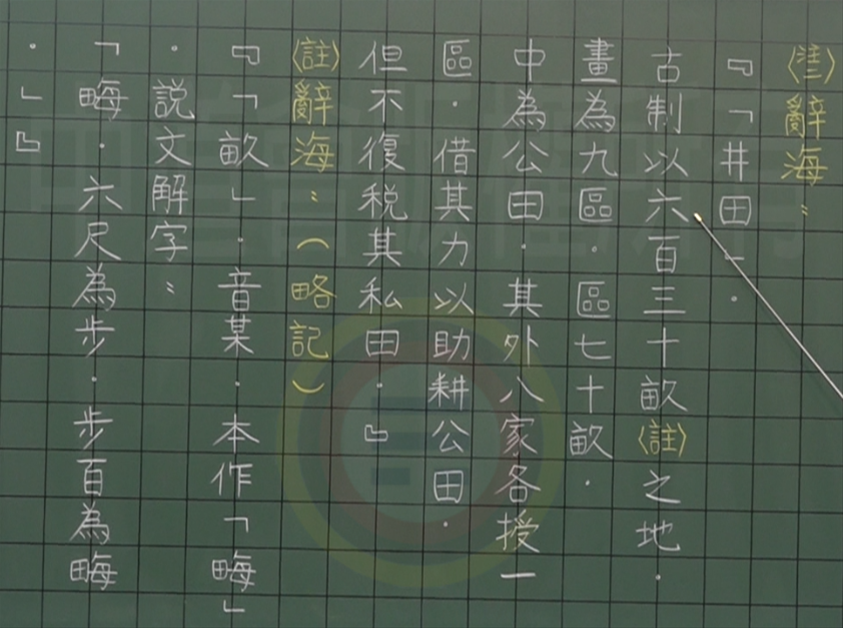 〈註〉辭海：
『「井田」．
古制以六百三十畝〈註〉之地．
畫為九區．區七十畝．
中為公田．其外八家各授一
區．借其力以助耕公田．
但不復稅其私田．』
〈註〉辭海：（略記）
『「畝」．音某．本作「畮」
．說文解字：
「畮．六尺為步．步百為畮
．」』